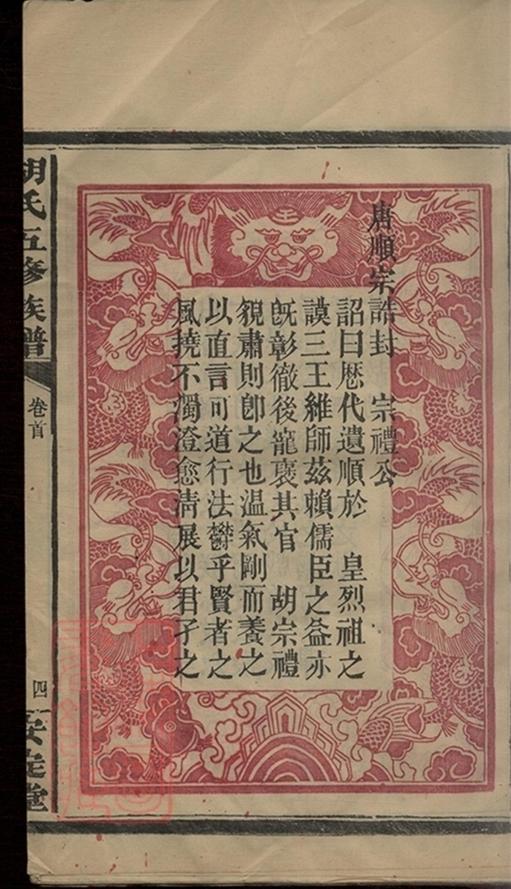 唐順宗誥封　宗禮公
詔曰歷代遺順於　皇烈祖之
謨三王維師茲賴儒臣之益亦
旣彰徹後寵褒其官　胡宗禮
貌肅則卽之也温氣剛而養之
以直言可道行法欝乎賢者之
風撓不濁澄愈淸展以君子之
胡氏五修族譜
卷首
四
安定堂